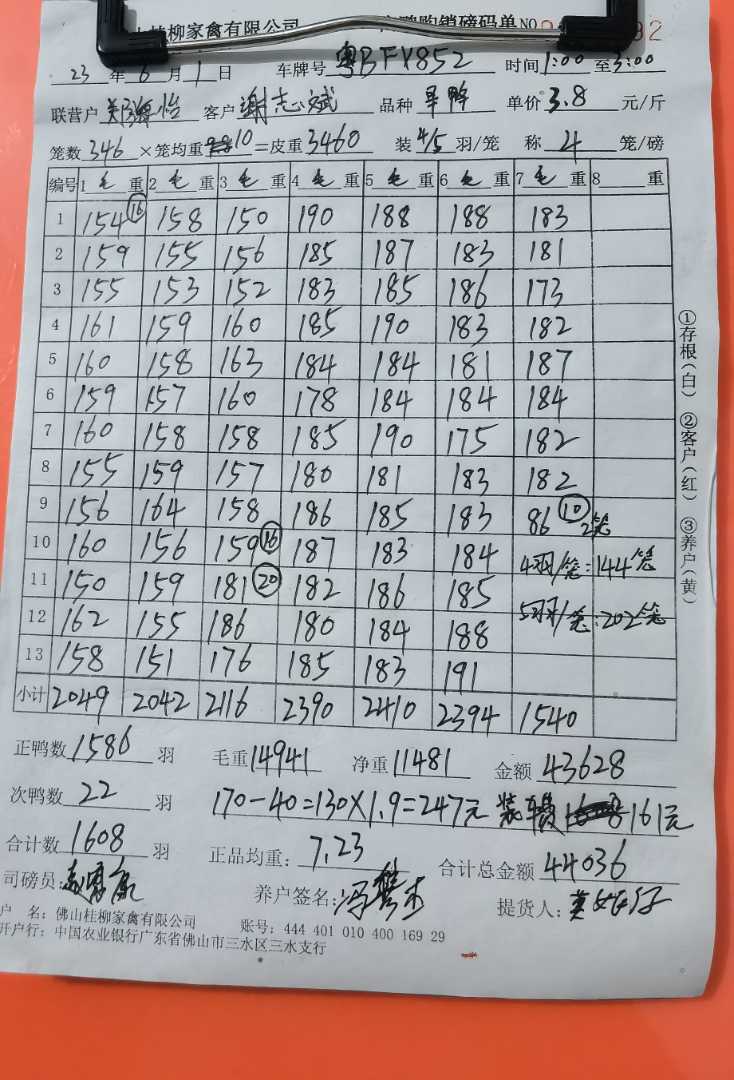 桂柳家禽有限公司 鸭购销磅码单 NO
23 年 6 月 1 日 车牌号 粤BFY852 时间 1:00 至 3:00
联营户 郑 怡 客户 谢志斌 品种 旱鸭 单价 3.8 元/斤
笼数 346 ×笼均重 10 =皮重 3460 装 4/5 羽/笼 称 4 笼/磅
编号 1 毛 重 2 毛 重 3 毛 重 4 毛 重 5 毛 重 6 毛 重 7 毛 重 8 重
1 154 ⑯ 158 150 190 188 188 183
2 159 155 156 185 187 183 181
3 155 153 152 183 185 186 173
4 161 159 160 185 190 183 182
5 160 158 163 184 184 181 187
6 159 157 160 178 184 184 184
7 160 158 158 185 190 175 182
8 155 159 157 180 181 183 182
9 156 164 158 186 185 183 86 ⑩ 2笼
10 160 156 159 ⑯ 187 183 184 4羽/笼:144笼
11 150 159 181 ⑳ 182 186 185
12 162 155 186 180 184 188 5羽/笼:202笼
13 158 151 176 185 183 191
小计 2049 2042 2116 2390 2410 2394 1540
正鸭数 1586 羽 毛重 14941 净重 11481 金额 43628
次鸭数 22 羽 170-40=130×1.9=247元 装车费 161元
合计数 1608 羽 正品均重: 7.23 合计总金额 44036
司磅员: 养户签名: 冯 杰 提货人: 仔
户 名: 佛山桂柳家禽有限公司 账号: 444 401 010 400 169 29
开户行: 中国农业银行广东省佛山市三水区三水支行
①存根(白) ②客户(红) ③养户(黄)